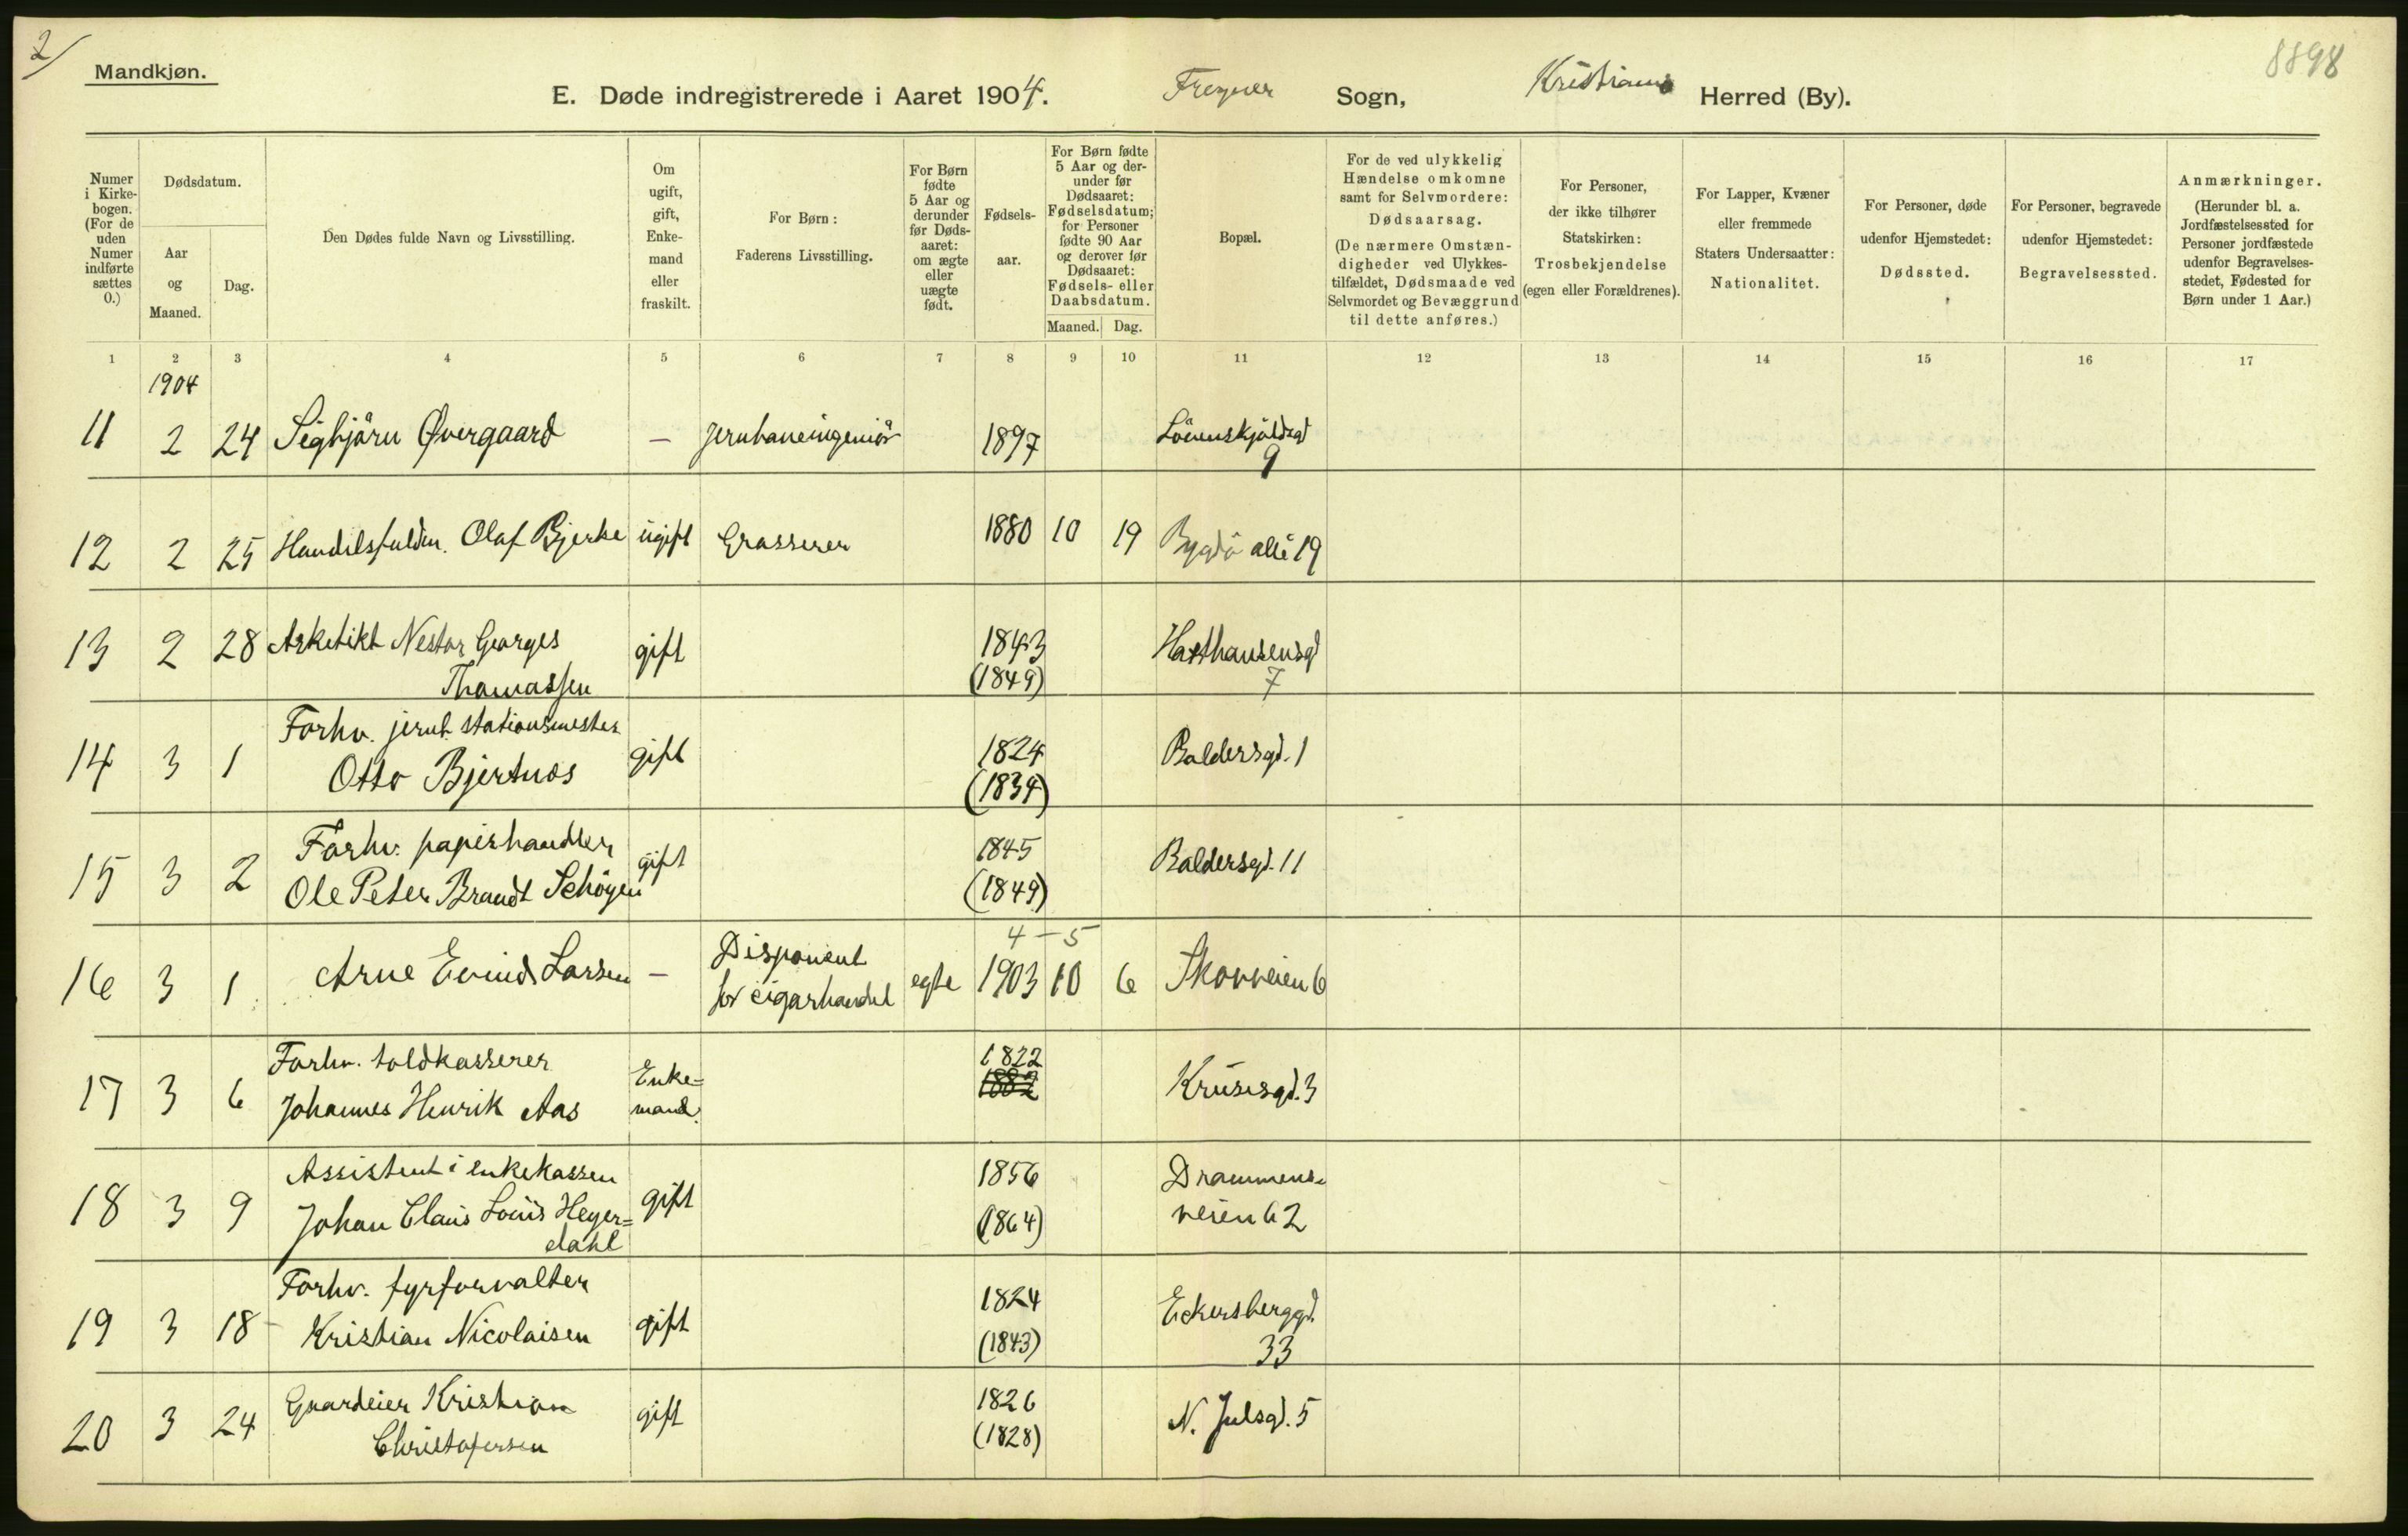 2/
Mandkjøn.
8898
E. Døde indregistrerede i Aaret 1904. Frogner Sogn, Kristiania Herred (By).
Numer i Kirkebogen. (For de uden Numer indførte sættes 0.)
Dødsdatum.
Aar og Maaned.
Dag.
Den Dødes fulde Navn og Livsstilling.
Om ugift, gift, Enkemand eller fraskilt.
For Børn: Faderens Livsstilling.
For Børn fødte 5 Aar og derunder før Dødsaaret: om ægte eller uægte født.
Fødselsaar.
For Børn fødte 5 Aar og derunder før Dødsaaret: Fødselsdatum; for Personer fødte 90 Aar og derover før Dødsaaret: Fødsels- eller Daabsdatum.
Maaned. Dag.
Bopæl.
For de ved ulykkelig Hændelse omkomne samt for Selvmordere: Dødsaarsag. (De nærmere Omstændigheder ved Ulykkestilfældet, Dødsmaade ved Selvmordet og Bevæggrund til dette anføres.)
For Personer, der ikke tilhører Statskirken: Trosbekjendelse (egen eller Forældrenes).
For Lapper, Kvæner eller fremmede Staters Undersaatter: Nationalitet.
For Personer, døde udenfor Hjemstedet: Dødssted.
For Personer, begravede udenfor Hjemstedet: Begravelsessted.
Anmærkninger. (Herunder bl. a. Jordfæstelsessted for Personer jordfæstede udenfor Begravelsesstedet, Fødested for Børn under 1 Aar.)
1 2 3 4 5 6 7 8 9 10 11 12 13 14 15 16 17
1904
11 2 24 Sigbjørn Øvergaard — Jernbaneingeniør 1897 Løvenskjoldsgd 9
12 2 25 Handelsfuldm. Olaf Bjerke ugift Grosserer 1880 10 19 Bygdø alle 19
13 2 28 Arkitekt Nestor Georges
Thomassen gift 1843
(1849) Harthausensgd
7
14 3 1 Forhv. jernb. stationsmester
Otto Bjertnæs gift 1824
(1834) Baldersgd. 1
15 3 2 Forhv. papirhandler
Ole Peter Brandt Schøyen gift 1845
(1849) Baldersgd. 11
4 - 5
16 3 1 Arne Evind Larsen — Disponent
for cigarhandel egte 1903 10 6 Skovveien 6
17 3 6 Forhv. toldkasserer
Johannes Henrik Aas Enke=
mand. 1822
1882 Krusesgd. 3
18 3 9 Assistent i enkekassen
Johan Claus Louis Heyer=
dahl gift 1856
(1864) Drammens-
veien 62
19 3 18 Forhv. fyrforvalter
Kristian Nicolaisen gift 1824
(1843) Eckersberggd.
33
20 3 24 Gaardeier Kristian
Christofersen gift 1826
(1828) N. Julsgd. 5